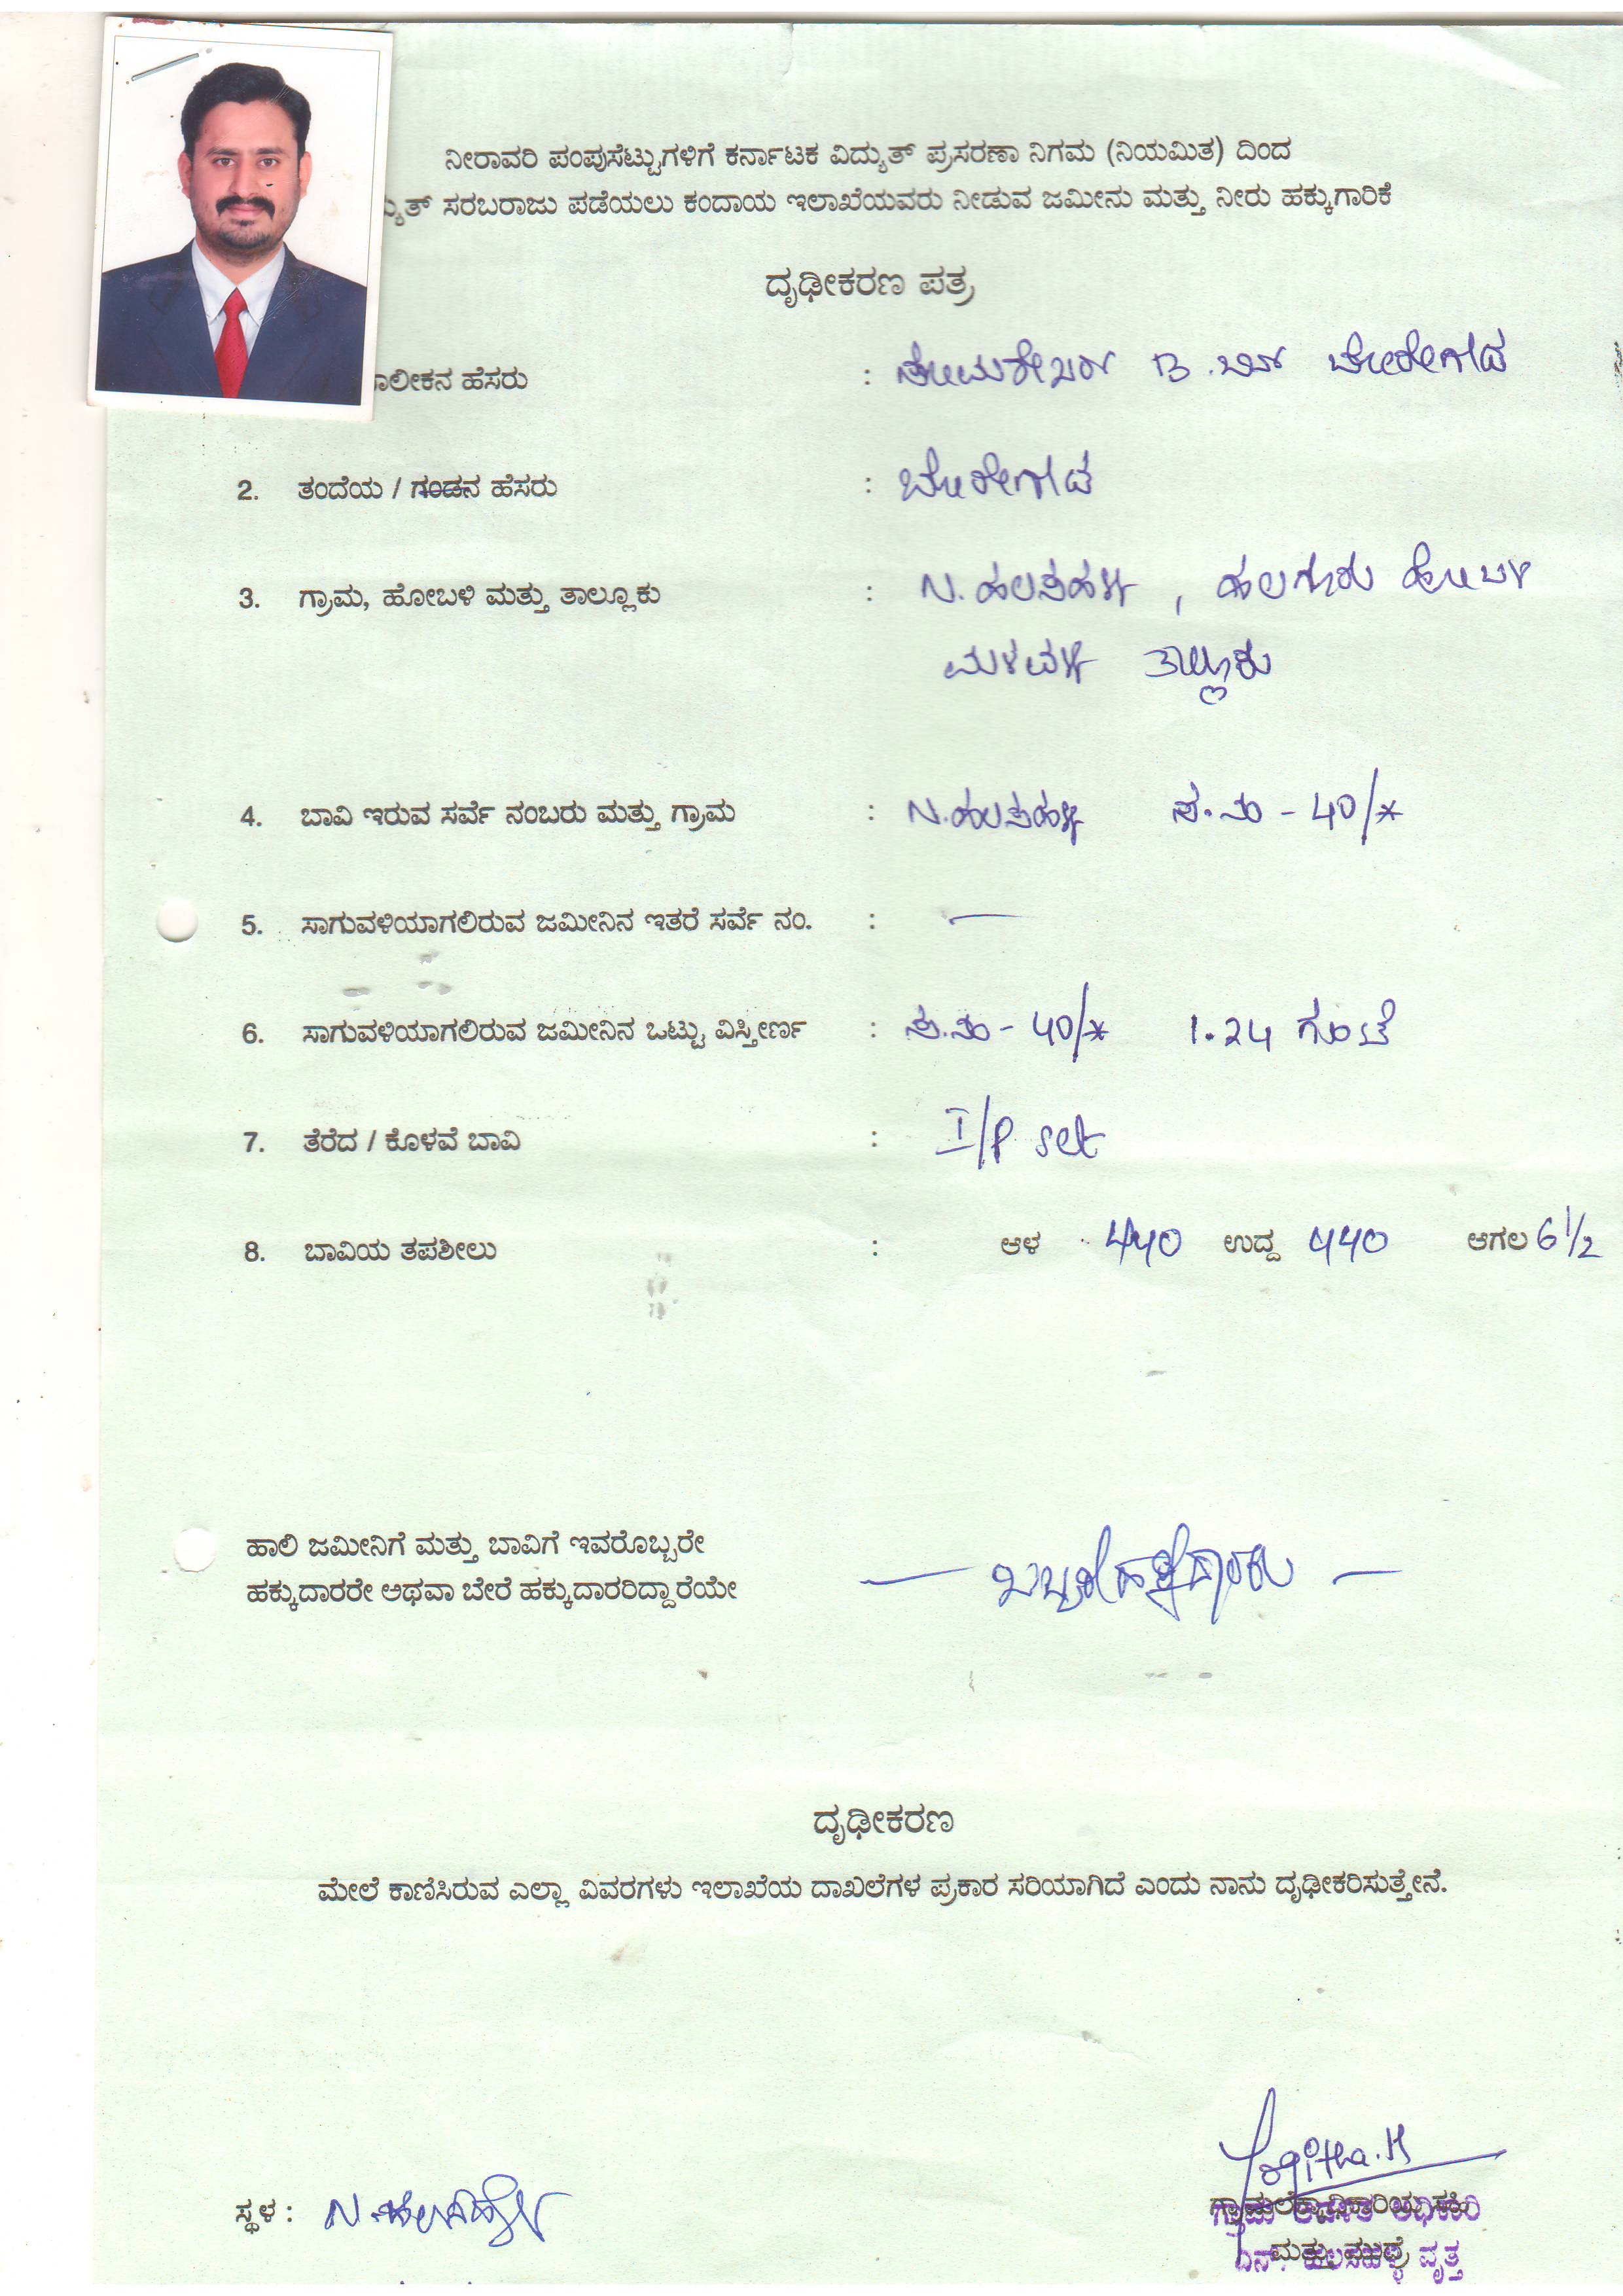 ನೀರಾವರಿ ಪಂಪುಸೆಟ್ಟುಗಳಿಗೆ ಕರ್ನಾಟಕ ವಿದ್ಯುತ್ ಪ್ರಸರಣಾ ನಿಗಮ (ನಿಯಮಿತ) ದಿಂದ
ಸರಬರಾಜು ಪಡೆಯಲು ಕಂದಾಯ ಇಲಾಖೆಯವರು ನೀಡುವ ಜಮೀನು ಮತ್ತು ನೀರು ಹಕ್ಕುಗಾರಿಕೆ
ದೃಢೀಕರಣ ಪತ್ರ
ಹೆಸರು : B. ಬಿನ್ ಬೋರೇಗೌಡ
2. ತಂದೆಯ / ಗಂಡನ ಹೆಸರು : ಬೋರೇಗೌಡ
3. ಗ್ರಾಮ, ಹೋಬಳಿ ಮತ್ತು ತಾಲ್ಲೂಕು : N. ಹಲಸಹಳ್ಳಿ , ಹಲಗೂರು ಹೋಬಳಿ
ಮಳವಳ್ಳಿ ತಾಲ್ಲೂಕು
4. ಬಾವಿ ಇರುವ ಸರ್ವೆ ನಂಬರು ಮತ್ತು ಗ್ರಾಮ : N. ಹಲಸಹಳ್ಳಿ ಸ.ನಂ - 40/*
5. ಸಾಗುವಳಿಯಾಗಲಿರುವ ಜಮೀನಿನ ಇತರೆ ಸರ್ವೆ ನಂ. : —
6. ಸಾಗುವಳಿಯಾಗಲಿರುವ ಜಮೀನಿನ ಒಟ್ಟು ವಿಸ್ತೀರ್ಣ : ಸ.ನಂ - 40/* 1.24 ಗುಂಟೆ
7. ತೆರೆದ / ಕೊಳವೆ ಬಾವಿ : I/P set
8. ಬಾವಿಯ ತಪಶೀಲು : ಆಳ 440 ಉದ್ದ 440 ಆಗಲ 6 1/2
ಹಾಲಿ ಜಮೀನಿಗೆ ಮತ್ತು ಬಾವಿಗೆ ಇವರೊಬ್ಬರೇ
ಹಕ್ಕುದಾರರೇ ಅಥವಾ ಬೇರೆ ಹಕ್ಕುದಾರರಿದ್ದಾರೆಯೇ
ದೃಢೀಕರಣ
ಮೇಲೆ ಕಾಣಿಸಿರುವ ಎಲ್ಲಾ ವಿವರಗಳು ಇಲಾಖೆಯ ದಾಖಲೆಗಳ ಪ್ರಕಾರ ಸರಿಯಾಗಿದೆ ಎಂದು ನಾನು ದೃಢೀಕರಿಸುತ್ತೇನೆ.
Yogitha.H
ಸ್ಥಳ : N. ಹಲಸಹಳ್ಳಿ
ಮತ್ತು ವೃತ್ತ